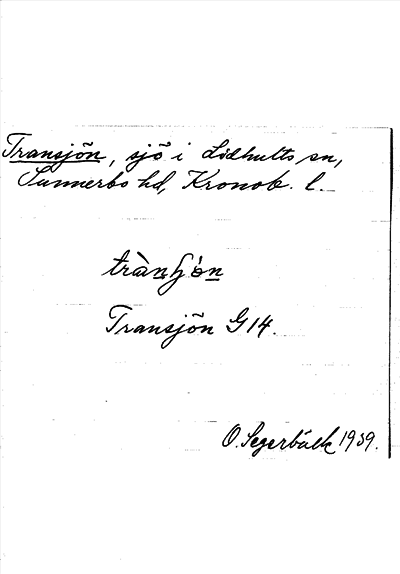 Transjön, sjö i Lidhults sn,
Sunnerbo hd, Kronob. l.
trànʃö̀n
Transjön G14.
O. Segerbäck 1939.